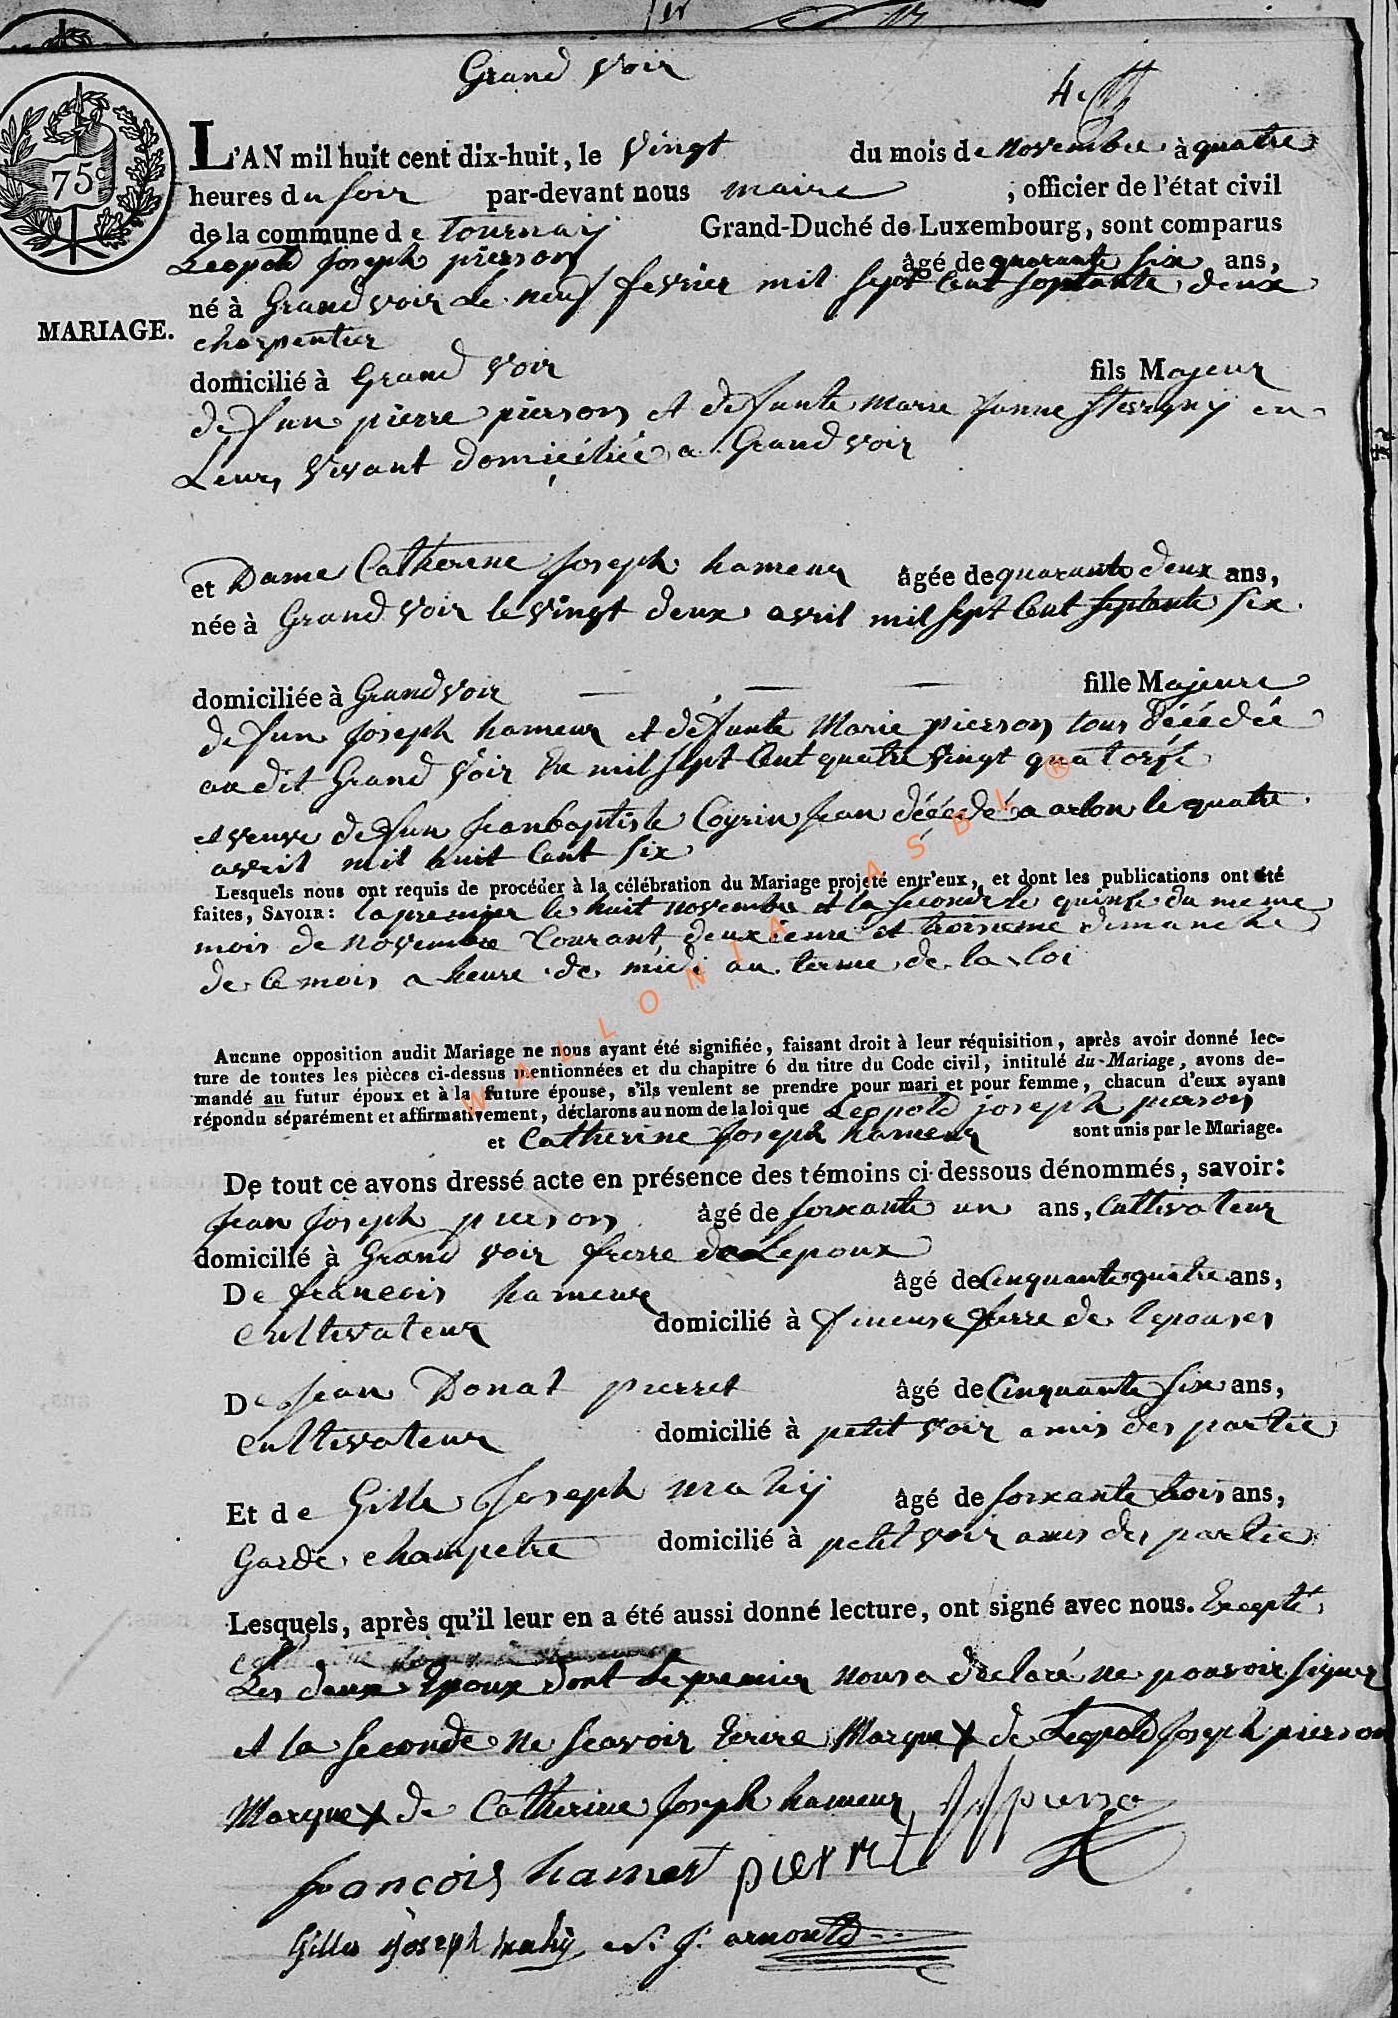 Grand Voir
4.e
75c
L'AN mil huit cent dix-huit, le vingt du mois de novembre à quatre
heures du soir par-devant nous maire , officier de l'état civil
de la commune de tournaij Grand-Duché de Luxembourg, sont comparus
Leopold joseph pierson âgé de quarante six ans,
né à Grand voir le neuf fevrier mil sept Cent soptante deux
MARIAGE.
charpentier
domicilié à Grand Voir fils Majeur
defun pierre pierson et defunte marie janne en
Leur, vivant domiciliée a Grand voir
et Dame Catherine joseph hameur âgée de quarante deux ans,
née à Grand Voir le vingt deux avril mil sept Cent septante six
domiciliée à Grand voir fille Majeure
defun joseph hameur et défunte Marie pierson tous décédée
audit Grand voir En mil sept Cent quatre vingt quatorse
et veuve defun jeanbaptiste décédé a arlon le quatre
avril mil huit Cent six
Lesquels nous ont requis de procéder à la célébration du Mariage projeté entr'eux, et dont les publications ont été
faites, SAVOIR: la premier le huit novembre et la seconde le quinse du meme
mois de novembre Courant deuxieme et troisieme dimanche
de Ce mois a heure de midi au terme de la loi
Aucune opposition audit Mariage ne nous ayant été signifiée, faisant droit à leur réquisition, après avoir donné lec-
ture de toutes les pièces ci-dessus mentionnées et du chapitre 6 du titre du Code civil, intitulé du-Mariage, avons de-
mandé au futur époux et à la future épouse, s'ils veulent se prendre pour mari et pour femme, chacun d'eux ayant
répondu séparément et affirmativement, déclarons au nom de la loi que Leopold joseph pierson
et Catherine joseph hameur sont unis par le Mariage.
De tout ce avons dressé acte en présence des témoins ci-dessous dénommés, savoir:
jean joseph pierson âgé de soixante un ans, Cultivateur
domicilié à Grand voir frerre de Lepoux
De francois hameur âgé de Cinquante quatre ans,
Cultivateur domicilié à frerre de lepouses
De jean Donat pierret âgé de Cinquante six ans,
Cultivateur domicilié à petit voir amis des partie
Et de Gille joseph mahij âgé de soixante trois ans,
Garde champetre domicilié à petit voir amis des partie
Lesquels, après qu'il leur en a été aussi donné lecture, ont signé avec nous. Excepté
Les deux Epoux dont Le premier nous a déclaré ne pouvoir signer
et la seconde ne scavoir Ecrire Marque X de Leopold joseph pierson
Marque X de Catherine joseph hameur
francois hamer pierret
Gilles joseph mahÿ J. arnould
WALLONIA ASBL ®